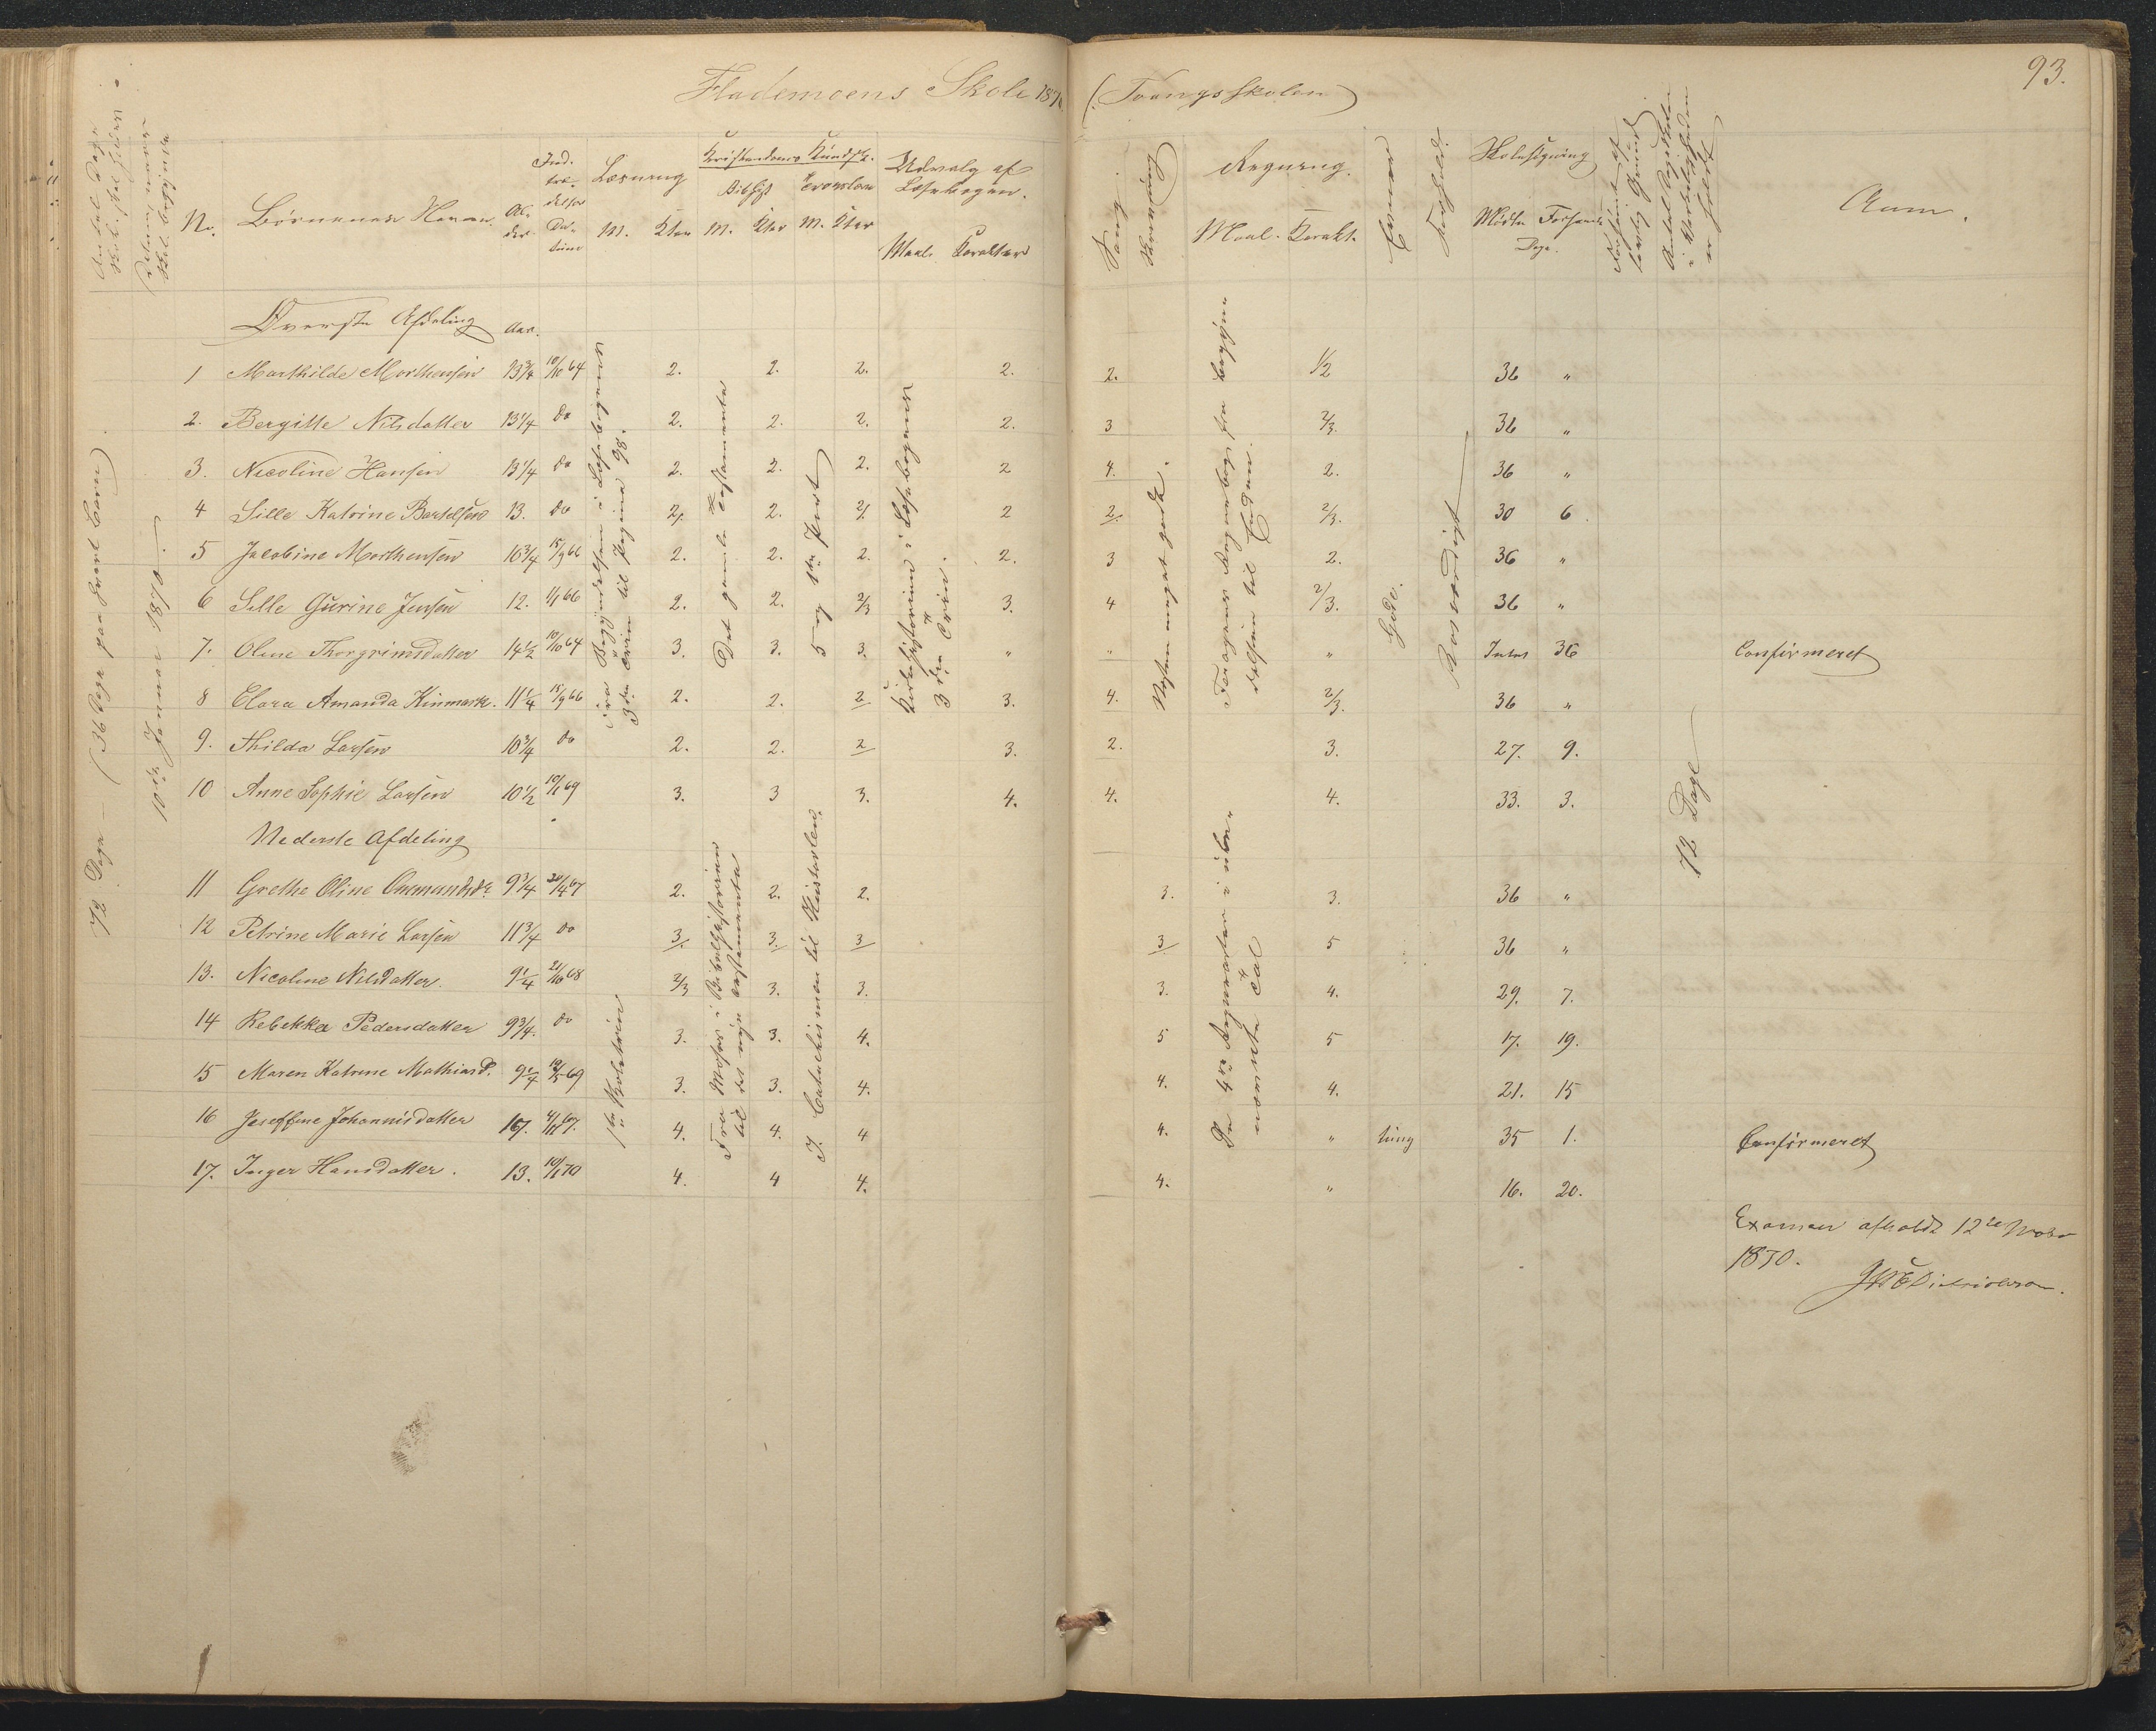 93.
Flademoens Skole 1870 (Tvangsskolen)
No. Børnenes Navne. Alder. Indtrædelses Datum Læsning M. Kter Kristendoms Kundsk. Bibhist M. Kter Troeslære M. Kter Udvalg af Læsebogen. Maal. Karakter Sang. Skrivning Regning. Maal. Karakt. Evner Forhold. Skolesøgning Mødte Forsømte Dage. Anm.
72 Dage — (36 Dage paa hvert Barn)
10de Januar 1870.
Øverste Afdeling Aar.
1 Marthilde Morthensen 13 3/4 10/10 64 2. 2. 2. 2. 2. 1/2 36 "
2. Bergitte Nilsdatter 13 1/4 do 2. 2. 2. 2. 3 2/3. 36 "
3. Nicoline Hansen 13 1/4 do 2. 2. 2. 2 4. 2. 36 "
4 Sille Katrine Bertelsen 13. do 2/. 2. 2/. 2 2/. 2/3. 30 6.
5 Jacobine Morthensen 10 3/4 15/9 66 2. 2. 2. 2. 3 2. 36 "
6 Sille Gurine Jensen 12. 1/1 66 2. 2. 2/3 3. 4 2/3. 36 "
7. Oline Thorgrimsdatter 14 1/2 10/10 64 3. 3. 3. " " " Intet 36 Confirmeret
8 Clara Amanda Kinmark. 11 1/4 15/9 66 2. 2. 2 3. 4. 2/3. 36 "
9. Thilda Larsen 10 3/4 do 2. 2. 2 3. 2. 3. 27. 9.
10 Anne Sophie Larsen 10 1/2 10/1 69 3. 3 3. 4. 4. 4. 33. 3.
fra Begyndelsen i Læsebogens 3die Trin til Pagina 98.
Det gamle Testamente
5 og 1ste Part
Kirkehistorien i Læsebogens 3die Trin.
Næsten meget godt.
Foragens Regnebog fra Begyndelsen til Enden.
Gode.
Rosværdigt
72 Dage
Nederste Afdeling
11 Grethe Oline Ommundsdr. 9 3/4 24/4 67 2. 2. 2. 3. 3. 36 "
12 Petrine Marie Larsen 11 3/4 do 3/. 3. 3/ 3/ 5 36 "
13. Nicoline Nilsdatter. 9 1/4 21/10 68 2/3 3. 3. 3. 4. 29. 7.
14 Rebekka Pedersdatter 9 3/4. do 3. 3. 4. 5 5 17. 19.
15 Maren Katrine Mathiasd. 9 1/4 12/5 69 3. 3. 4. 4. 4. 21. 15
16 Joseffine Johannisdatter 16. 4/11 67. 4. 4. 4 4. " tung 35 1. Confirmeret
17. Inger Hansdatter. 13. 10/1 70 4. 4 4. 4. " 16. 20.
1ste Skoletrin
Fra Moses i Bibelhistorien til det nye Testamente
I Catechismen til
De 4re Regnearter i ubenævnte Tal
Examen afholdt 12te Novbr
1870.